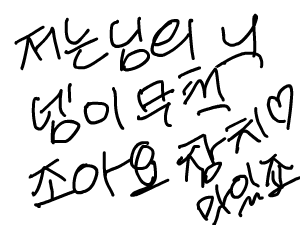 저는님의 니
넴이 무척
조아요 참치♡
맛있죠